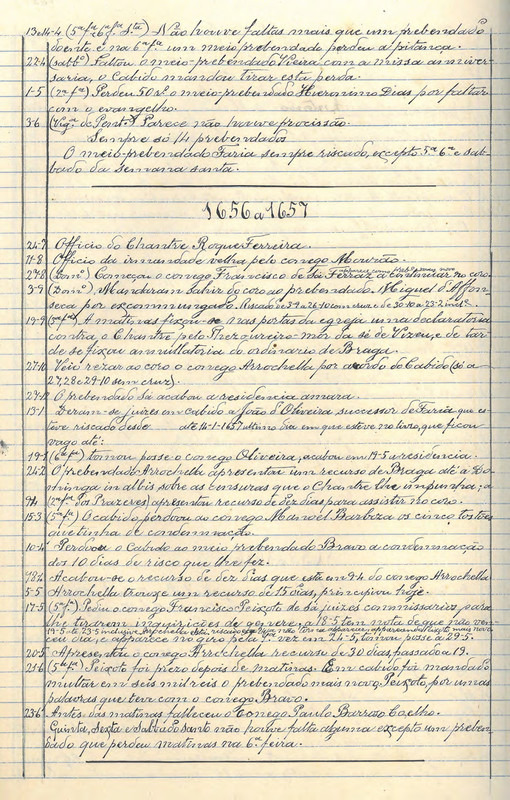 13 e 14-4 (5ª fª e 6ª fª Stª) Não houve faltas mais que um prebendado
doente e na 6ª fª um meio prebendado perdeu a pitança.
22-4 (sabbº) Faltou o meio-prebendado Vieira com a missa anniver-
saria, o Cabido mandou tirar esta perda.
1-5 (2ª fª) Perdeu 50 rs o meio-prebendado Hieronimo Dias por faltar
com o evangelho.
3-6 (Vigª de Pentes) Parece não houve procissão.
Sempre só 14 prebendados
O meio-prebendado Faria sempre riscado, excepto 5ª 6ª e sab-
bado da semana santa.
1656 a 1657
24-7 Officio do Chantre Roque Ferreira.
11-8 Officio da irmandade velha pelo conego Mourão.
27-8 (Domº) Começou o conego Francisco de Sá Ferraz a continuar no coro.
3-9 (Domº) Mandaram sahir do coro ao prebendado Miguel d'Affon-
seca por excommungado. Riscado de 3-9 a 26-10 com cruz e de 30-10 a 23-2
19-9 (3ª fª) A matinas fixou-se nas portas da egreja uma declaratoria
contra o Chantre pelo Thezoureiro-mór da sé de Vizeu, e de tar-
de se fixou annullatoria do ordinario de Braga.
27-10 Veiu rezar ao coro o conego Arrochella por acordo do Cabido (só a
27, 28 e 29-10 sem cruz).
27-12 O prebendado Sá acabou a residencia amara.
13-1 Deram-se juizes em cabido a João d'Oliveira successor de Faria que es-
teve riscado desde até 14-1-1657 ultimo dia em que esteve no livro, que ficou
vago até:
19-1 (6ª fª) tomou posse o conego Oliveira, acabou em 19-5 a residencia.
24-2 O prebendado Arrochella apresentou um recurso de Braga até a do-
minga in albis sobre as censuras que o Chantre lhe impunha; a
9-4 (2ª fª dos Prazeres) apresentou recurso de dez dias para assistir no coro.
15-3 (5ª fª) O cabido perdoou ao conego Manoel Barboza os cinco tostões
que tinha de condemnação.
10-4 Perdoou o Cabido ao meio prebendado Bravo a condemnação
dos 10 dias de risco que lhe fez.
Acabou-se o recurso de dez dias que está em 9-4 do conego Arrochella
5-5 Arrochella trouxe um recurso de 15 dias, principiou hoje.
17-5 (5ª fª) Pediu o conego Francisco Peixoto de Sá juizes commissarios para
lhe tirarem inquirições de genere, a 18-5 tem nota de que não ven-
ceu dia e apparece no giro pela 1ª vez em 24-5, tomou posse a 29-5.
20-5 Apresentou o conego Arrochella recurso de 30 dias, passado a 19.
21-6 (5ª fª) Peixoto foi prezo depois de matinas. Em cabido foi mandado
multar em seis mil reis o prebendado mais novo, Peixoto, por umas
palavras que teve com o conego Bravo.
23-6 Antes das matinas falleceu o conego Paulo Barrozo Coelho.
Quinta, Sexta e Sabbado santo não houve falta alguma excepto um preben-
dado que perdeu matinas na 6ª feira.